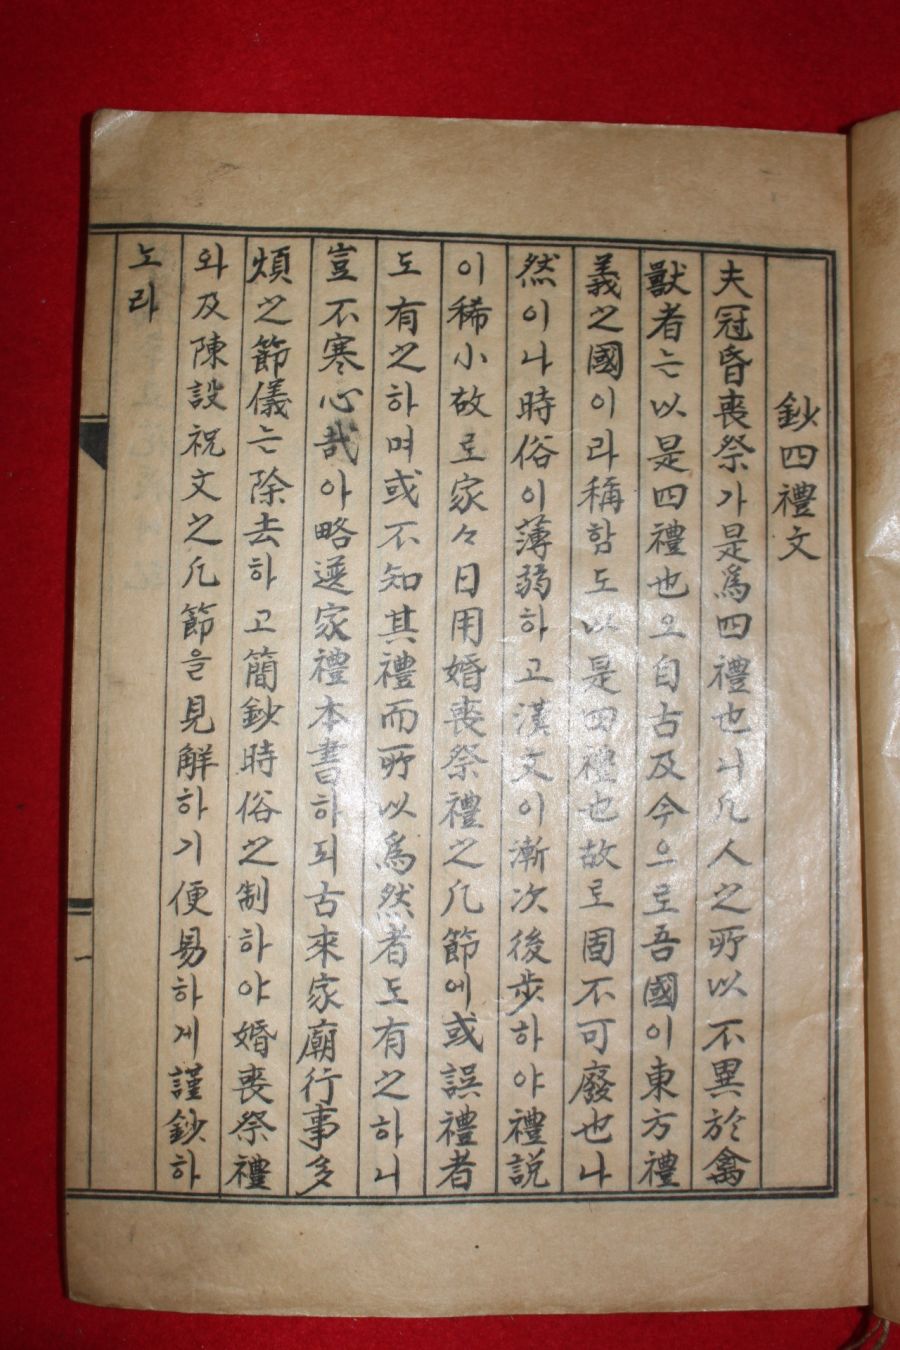 鈔四禮文
夫冠昏喪祭가是爲四禮也니凡人之所以不異於禽
獸者는以是四禮也오自古及今으로吾國이東方禮
義之國이라稱함도以是四禮也故로固不可廢也나
然이나時俗이薄弱하고漢文이漸次後步하야禮説
이稀小故로家々日用婚喪祭禮之凡節에或誤禮者
도有之하며或不知其禮而所以爲然者도有之하니
豈不寒心哉아略選家禮本書하되古來家廟行事多
煩之節儀는除去하고簡鈔時俗之制하야婚喪祭禮
와及陳設祝文之凡節을見解하기便易하게謹鈔하
노라
一